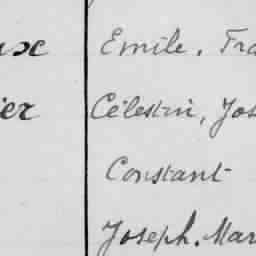 Emile. Fra
Célestin, Jos
Constant
Joseph. Mar